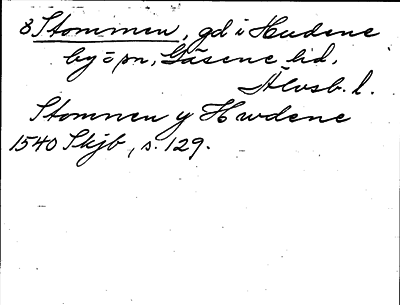 8 Stommen, gd i Hudene
by o pn, Gäsene hd,
Älvsb. l.
Stomnen y Hwdene
1540 Skjb, s. 129.